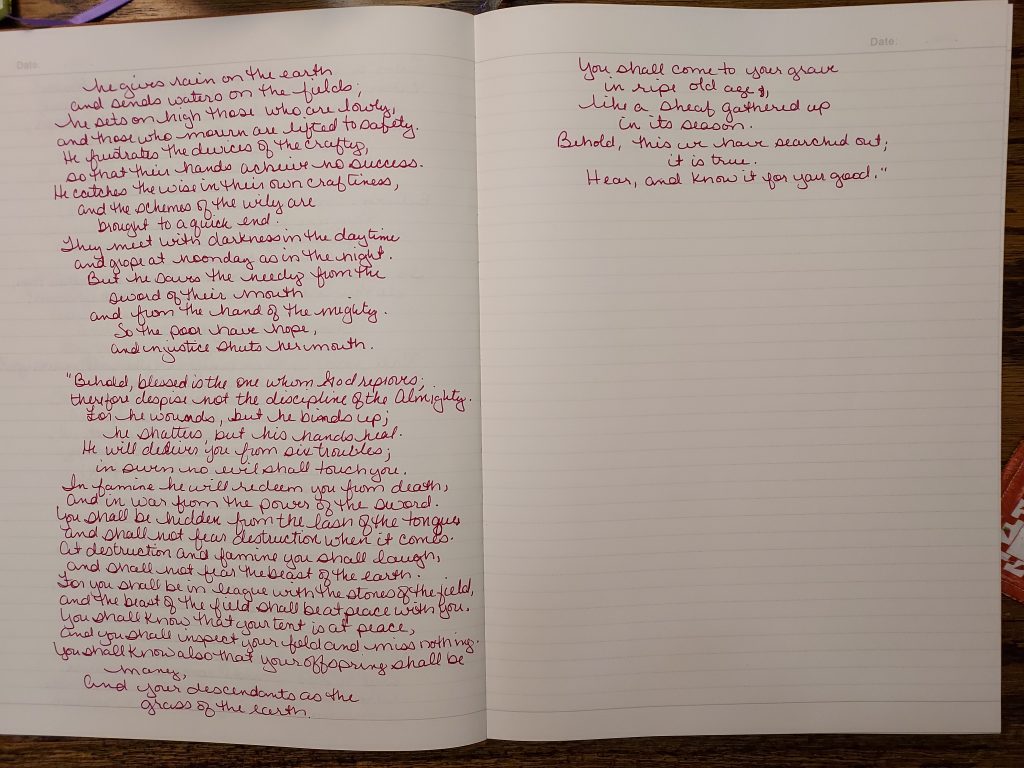 Date:
he gives rain on the earth
and sends waters on the fields;
he sets on high those who are lowly,
and those who mourn are lifted to safety.
He frustrates the devices of the crafty,
so that their hands achieve no success.
He catches the wise in their own craftiness,
and the schemes of the wily are
brought to a quick end.
They meet with darkness in the daytime
and grope at noonday as in the night.
But he saves the needy from the
sword of their mouth
and from the hand of the mighty.
So the poor have hope,
and injustice shuts her mouth.
"Behold, blessed is the one whom God reproves;
therefore despise not the discipline of the Almighty.
For he wounds, but he binds up;
he shatters, but his hands heal.
He will deliver you from six troubles;
in seven no evil shall touch you.
In famine he will redeem you from death,
and in war from the power of the sword.
You shall be hidden from the lash of the tongue
and shall not fear destruction when it comes.
At destruction and famine you shall laugh,
and shall not fear the beast of the earth.
For you shall be in league with the stones of the field,
and the beast of the field shall be at peace with you.
You shall know that your tent is at peace,
and you shall inspect your fold and miss nothing.
You shall know also that your offspring shall be
many,
and your descendants as the
grass of the earth.
Date:
You shall come to your grave
in ripe old age,
like a sheaf gathered up
in its season.
Behold, this we have searched out;
it is true.
Hear, and know it for your good."